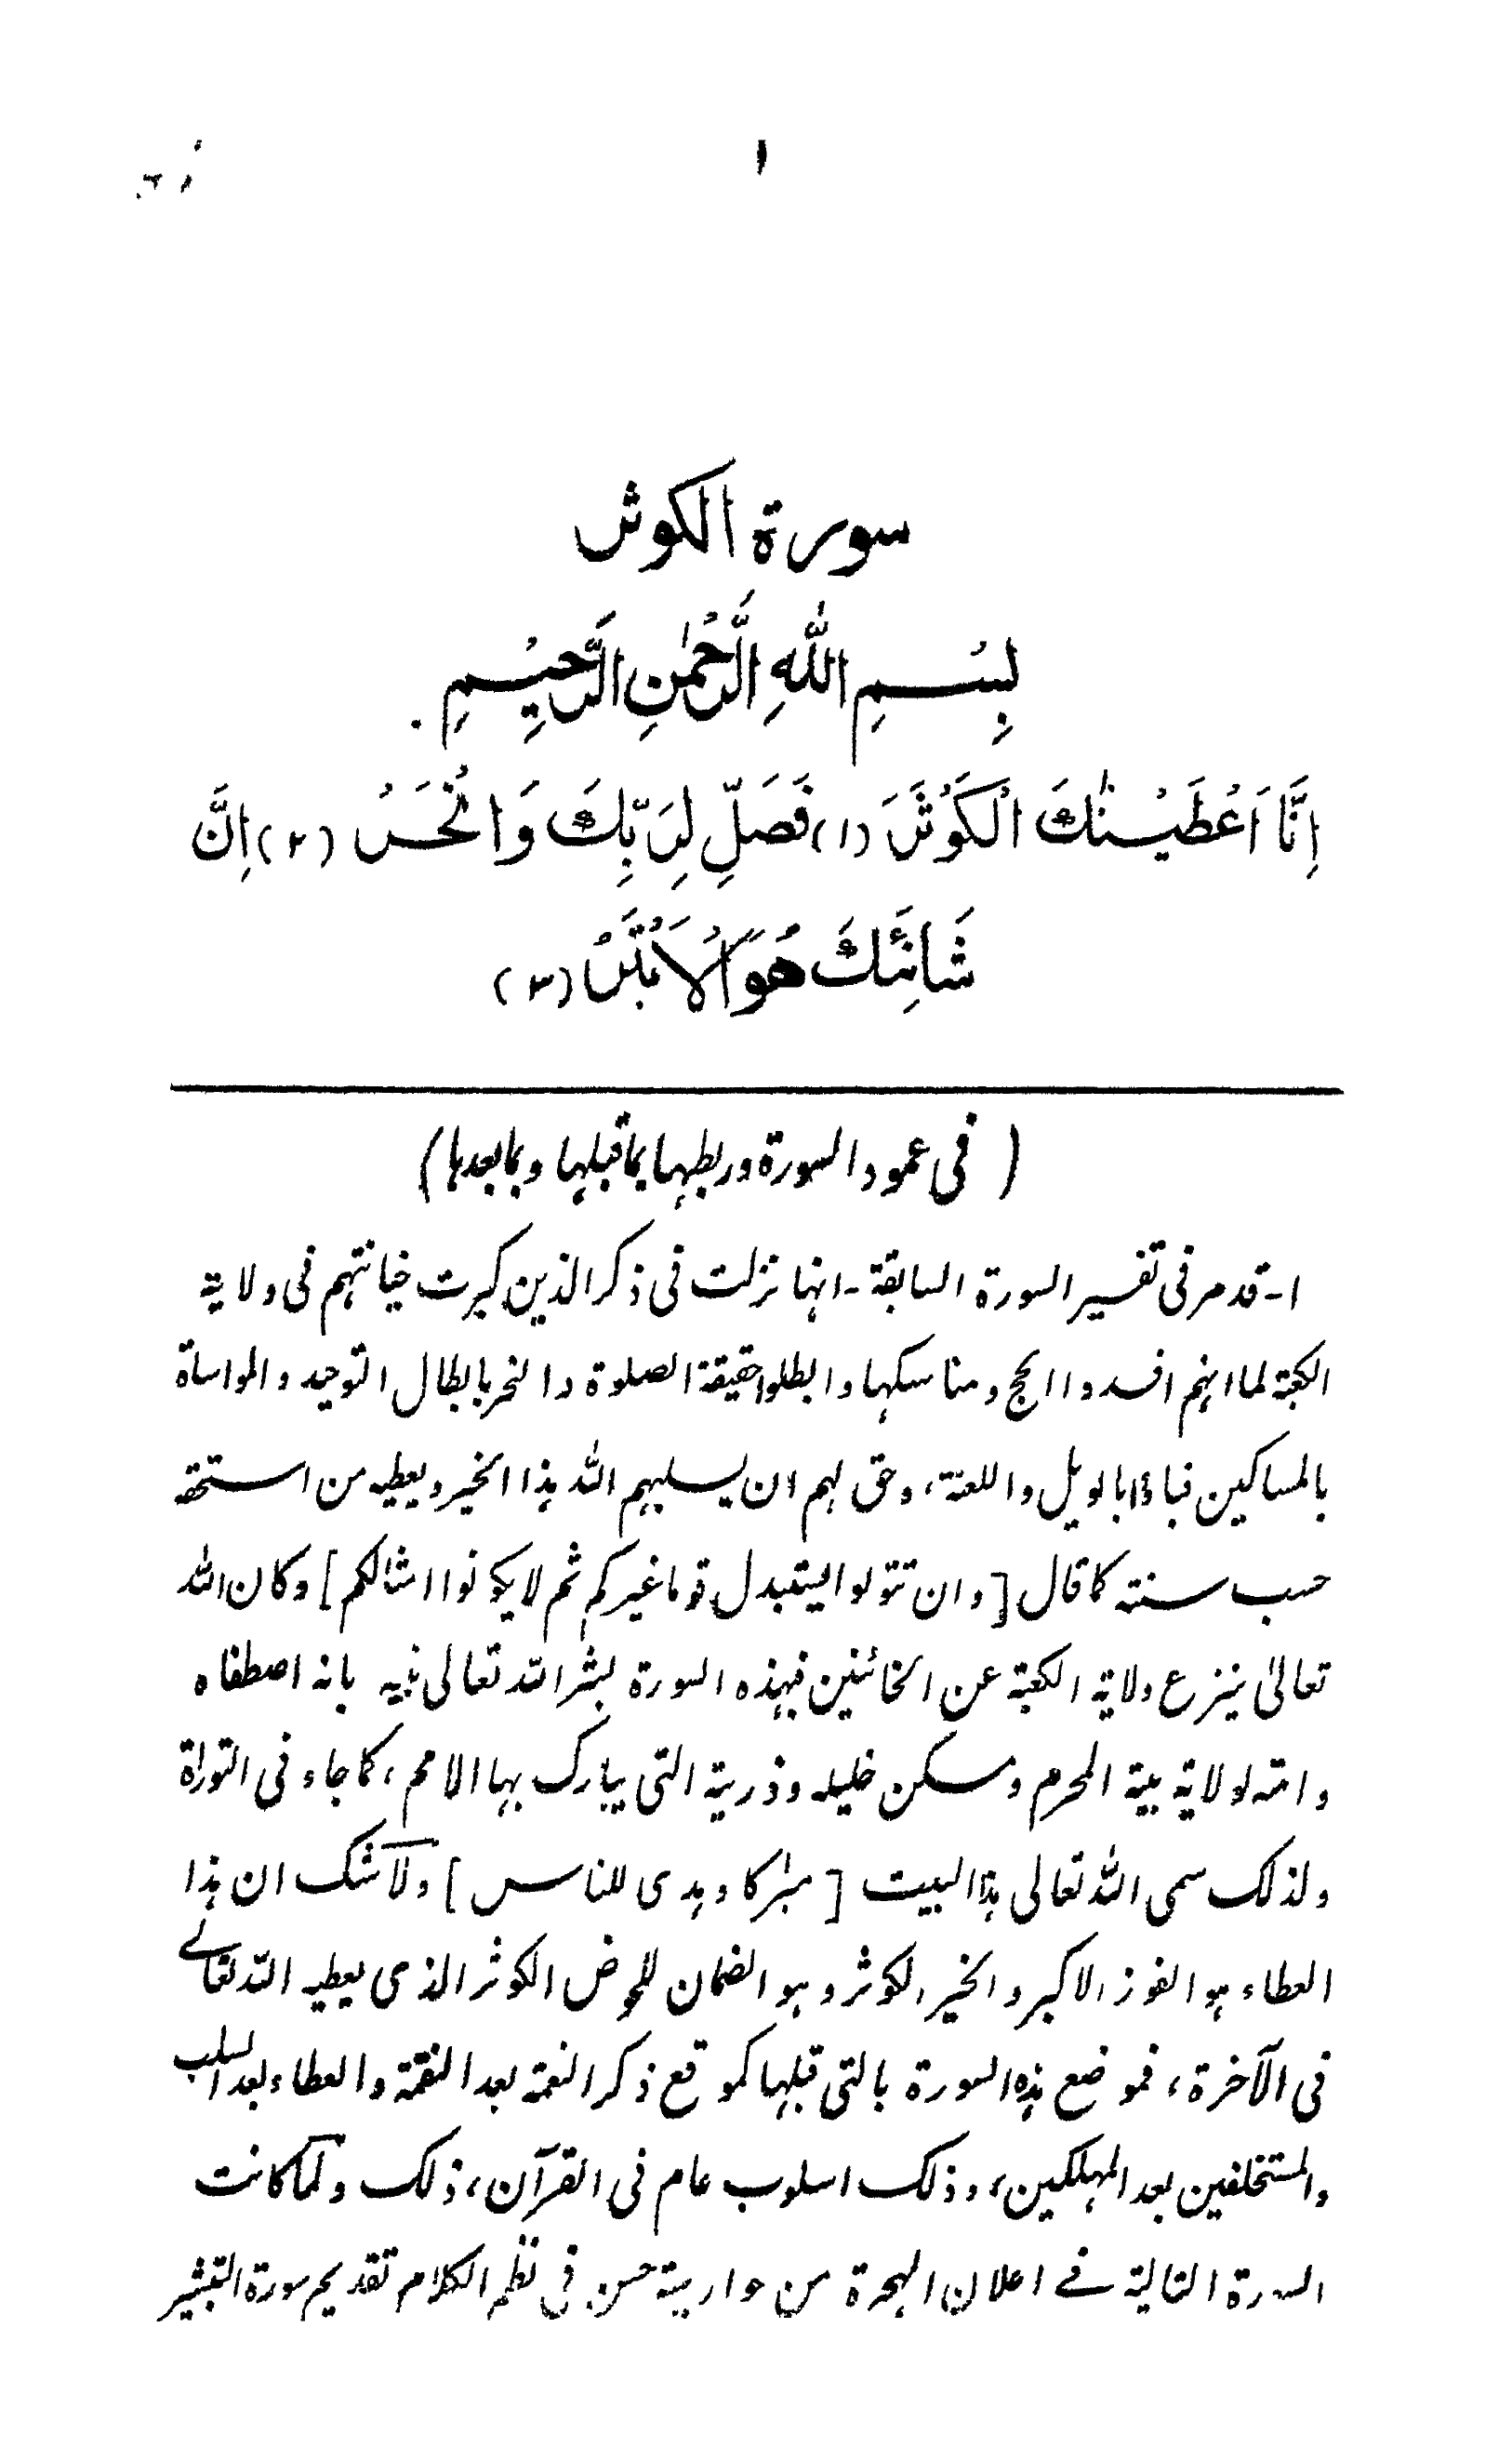 ١
سورة الكوثر
بِسْمِ اللهِ الرَّحْمٰنِ الرَّحِيْمِ
اِنَّا اَعْطَيْنٰكَ الْكَوْثَرَ (١) فَصَلِّ لِرَبِّكَ وَانْحَرْ (٢) اِنَّ
شَانِئَكَ هُوَ الْاَبْتَرُ (٣)
( فی عمود السورة وربطہا بما قبلہا وبما بعدہا )
١- قد مر فی تفسیر السورة السابقة- انہا نزلت فی ذکر الذین کبرت خیانتہم فی ولایة
الکعبة لما انہم افسدوا الحج ومناسکہا وابطلوا حقیقة الصلوة والنحر بابطال التوحید والمواساة
بالمساکین فباؤا بالویل واللعنة، وحق لہم ان یسلبہم اللہ ہذا الخیر ویعطیہ من استحقہ
حسب سنتہ کما قال [وان تتولوا یستبدل قوما غیرکم ثم لا یکونوا امثالکم] وکان اللہ
تعالیٰ ینزع ولایة الکعبة عن الخائنین فبہذہ السورة بشر اللہ تعالی نبیہ بانہ اصطفاہ
وامتہ لولایة بیتہ المحرم ومسکن خلیلہ وذریتہ التی یبارک بہا الامم، کما جاء فی التوراة
ولذلک سمی اللہ تعالی ہذا البیت [مبٰرکا وہدی للناس] ولا شک ان ہذا
العطاء ہو الفوز الاکبر والخیر الکوثر وہو الضمان للحوض الکوثر الذی یعطیہ اللہ تعالے
فی الآخرة، فموضع ہذہ السورة بالتی قبلہا کموقع ذکر النعمة بعد النقمة والعطاء بعد السلب
والمستخلفین بعد المہلکین، وذلک اسلوب عام فی القرآن، ذلک ولما کانت
السورة التالیة فے اعلان الہجرة من حسن فی نظم الکلام تقدیم سورة التبشیر